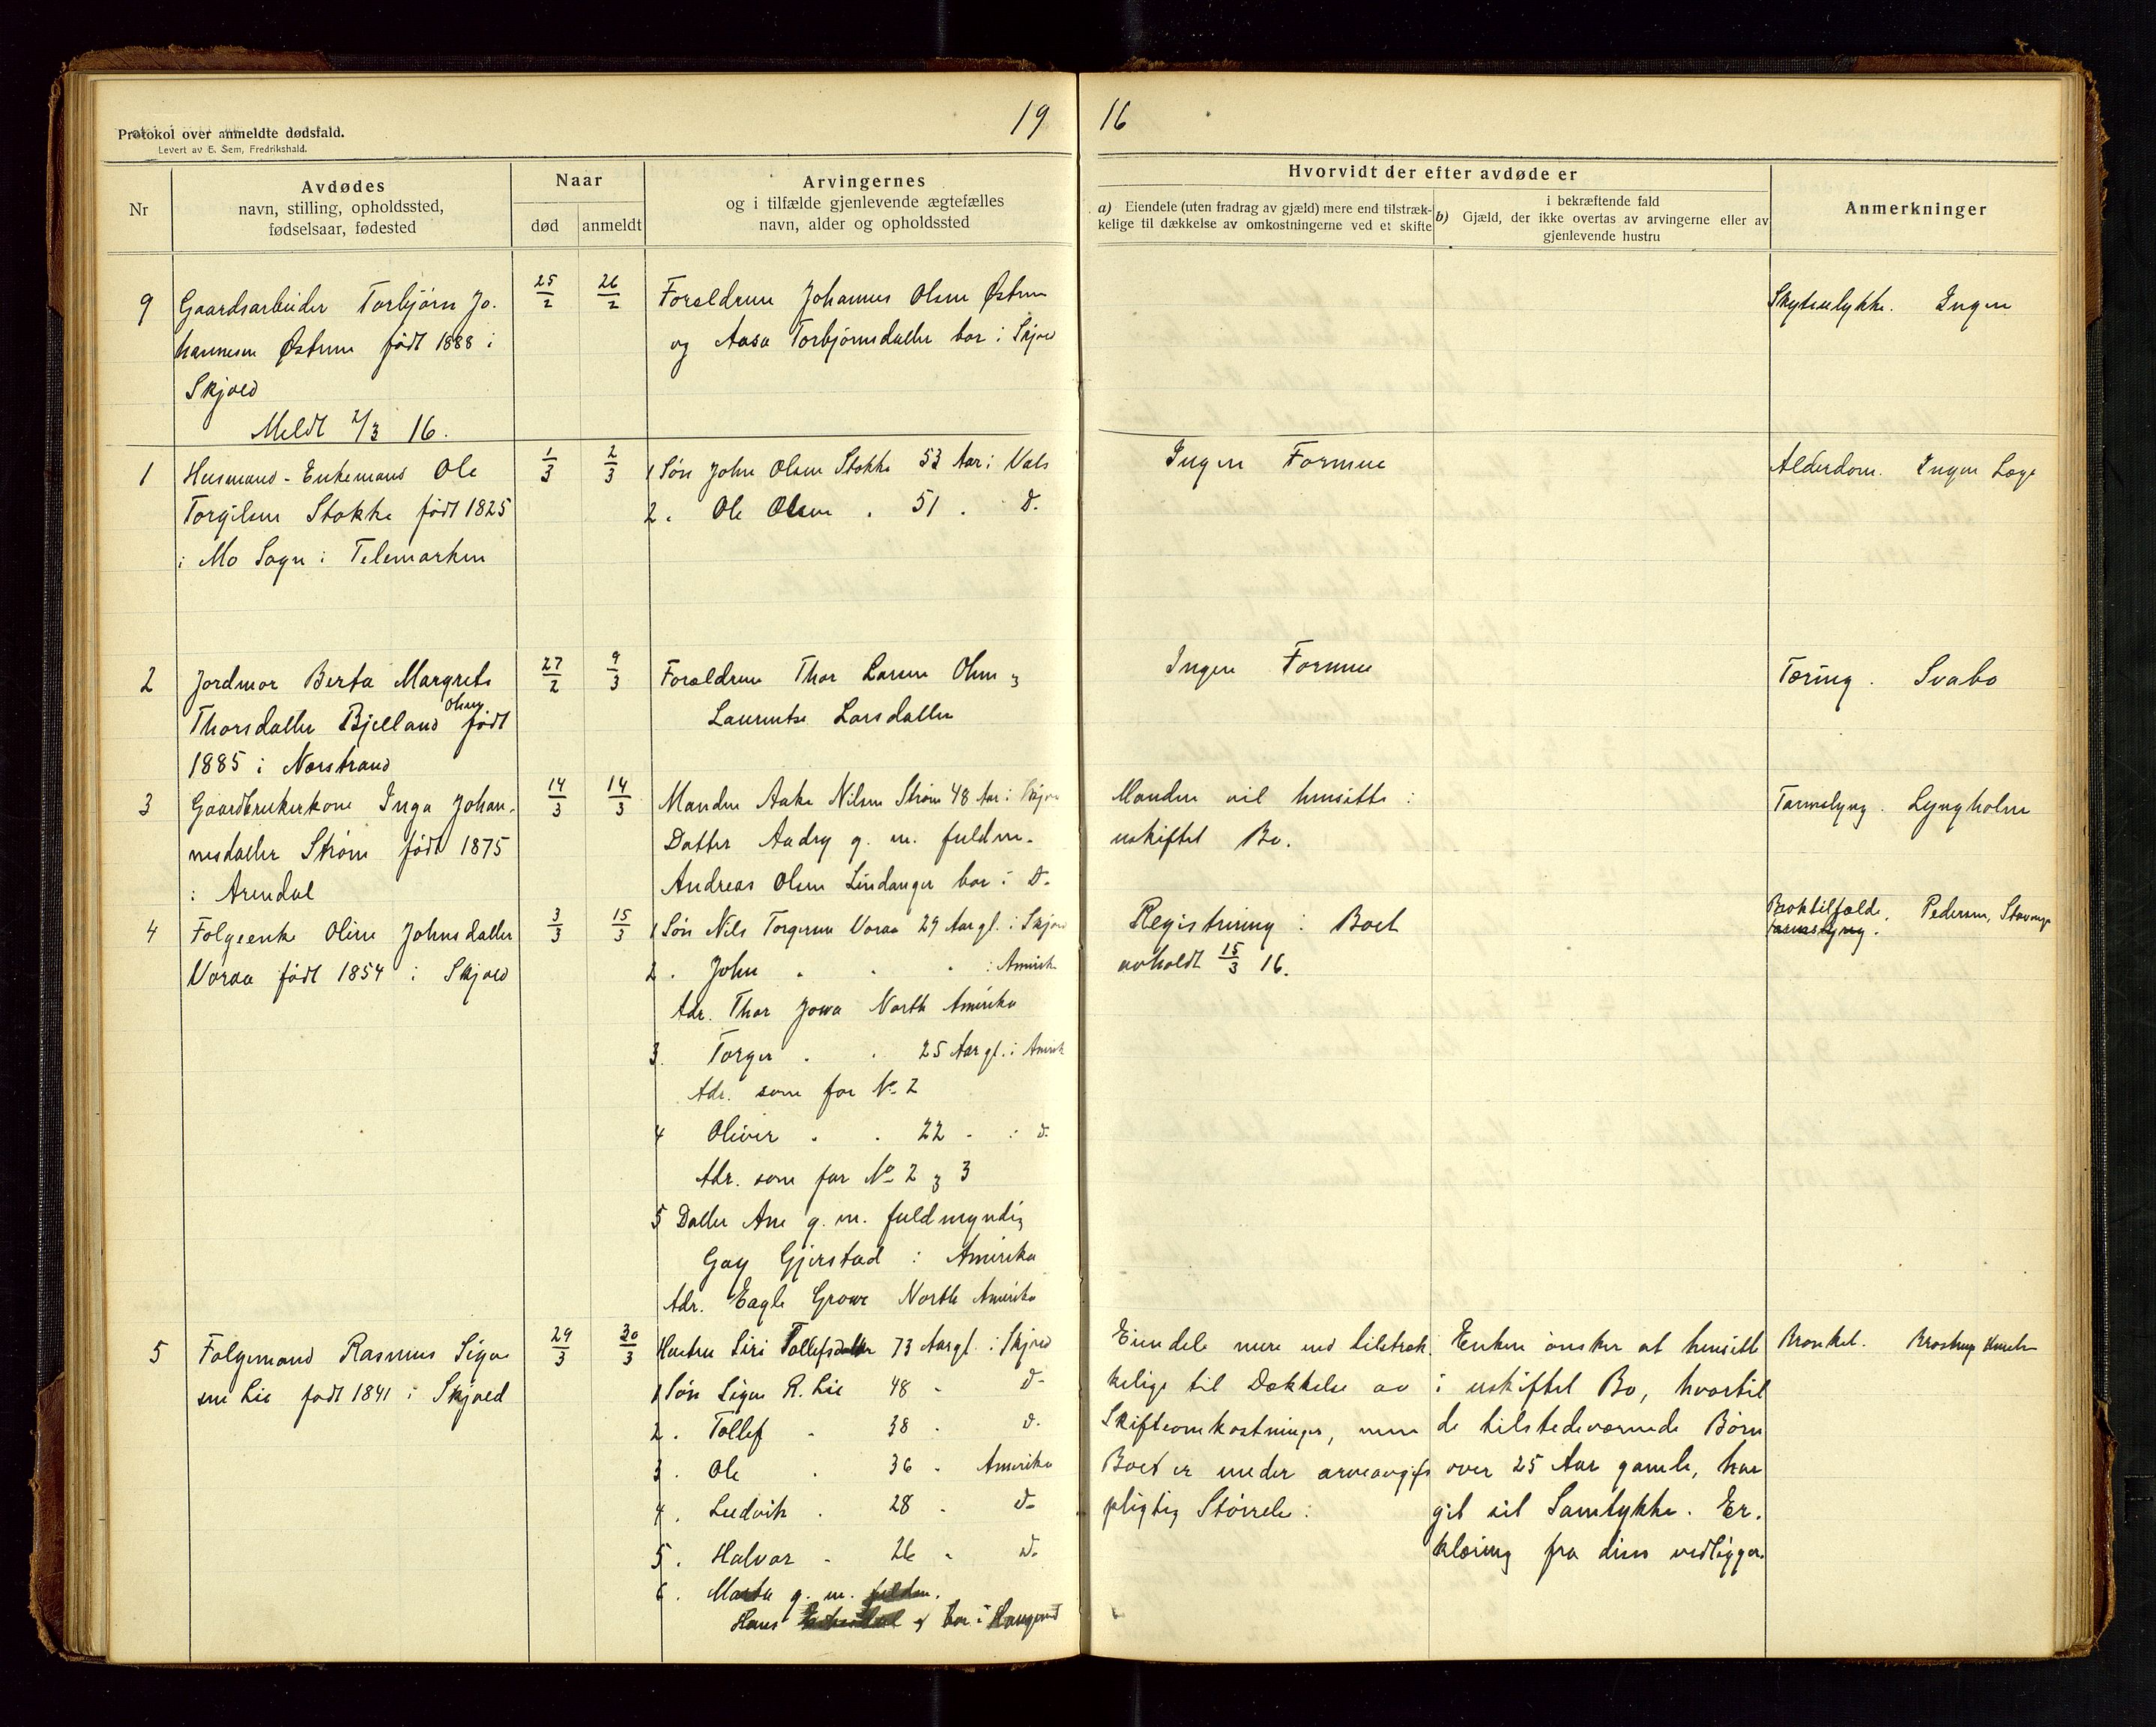 Protokol over anmeldte dødsfald.
Levert av E. Sem, Fredrikshald.
19 16
Nr
Avdødes
navn, stilling, opholdssted,
fødselsaar, fødested
Naar
død
anmeldt
Arvingernes
og i tilfælde gjenlevende ægtefælles
navn, alder og opholdssted
Hvorvidt der efter avdøde er
a) Eiendele (uten fradrag av gjæld) mere end tilstræk-
kelige til dækkelse av omkostningerne ved et skifte
i bekræftende fald
b) Gjæld, der ikke overtas av arvingerne eller av
gjenlevende hustru
Anmerkninger
9 Gaardsarbeider Torbjørn Jo-
hannesen Østrem født 1888 i
Skjold
Meldt 2/3 16.
25/2 26/2
Forældrene Johannes Olsen Østrem
og Aasa Torbjørnsdatter bor i Skjold
Skytsulykke. Ingen
1 Husmand-Enkemand Ole
Torgilsen Stokke født 1825
i Mo Sogn i Telemarken
1/3 2/3
1 Søn John Olsen Stokke 53 Aar i Vats
2. Ole Olsen . 51 . D.
Ingen Formue
Alderdom. Ingen Læge
2 Jordmor Berta Margrete
Thorsdatter Bjelland Olsen født
1885 i Nærstrand
27/2 9/3
Forældrene Thor Larsen Ohm og
Laurentse Larsdatter
Ingen Formue
Tæring. Svabo
3 Gaardbrukerkone Inga Johan-
nesdatter Strøm født 1875
i Arendal
14/3 14/3
Manden Aake Nilsen Strøm 48 Aar i Skjold
Datter Aadry g. m. fuldm.
Andreas Olsen Lindanger bor i D.
Manden vil hensitte i
uskiftet Bo.
Tarmslyng. Lyngholm
4 Folgeenke Oline Johnsdatter
Voraa født 1854 i Skjold
3/3 15/3
1 Søn Nils Torgersen Voraa 29 Aar gl. i Skjold
2. John . . . i Amerik
Adr. Thor Jowa North Amerika
3. Torger . . 25 Aar gl. i Amerik
Adr. som for No 2
4 Oliver . . 22 . i d.
Adr. som for No 2 og 3
5 Datter Ane g. m. fuldmyndig
Gay Gjerstad i Amerika
Adr. Eagle Growe North Amerika
Registrering i Boet
avholdt 15/3 16.
Broktilfælde. Pedersen, Stavanger
Tarmslyng.
5 Folgemand Rasmus Sigve
sen Lie født 1841 i Skjold
29/3 30/3
Hustru Siri Tollefsdatter 73 Aar gl. i Skjold
1 Søn Sigve R. Lie 48 . D.
2. Tollef . 38 . D.
3. Ole . 36 . Amerika
4. Ludvik . 28 . D.
5. Halvor . 26 . D.
6. Marta g. m. fuldm.
Hans bor i Haugesund
Eiendele mere end tilstræk-
kelige til Dækkelse av
Skifteomkostninger, men
Boet er under arveavgifs
pligtig Størrelse.
Enken ønsker at hensitte
i uskiftet Bo, hvortil
de tilstedeværende Børn
over 25 Aar gamle, har
git sit Samtykke. Er-
klæring fra disse vedligger.
Bronkit.